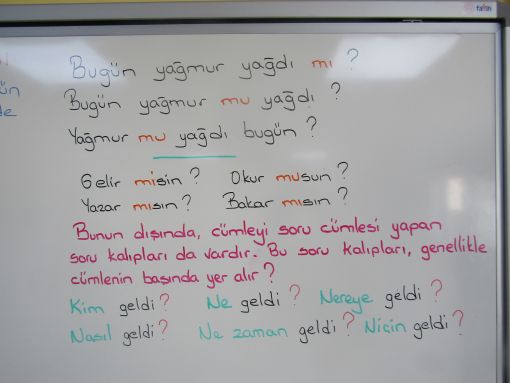 Bugün yağmur yağdı mı ?
Bugün yağmur mu yağdı ?
Yağmur mu yağdı bugün ?
Gelir misin ? Okur musun ?
Yazar mısın ? Bakar mısın ?
Bunun dışında, cümleyi soru cümlesi yapan
soru kalıpları da vardır. Bu soru kalıpları, genellikle
cümlenin başında yer alır ?
Kim geldi ? Ne geldi ? Nereye geldi ?
Nasıl geldi ? Ne zaman geldi ? Niçin geldi ?